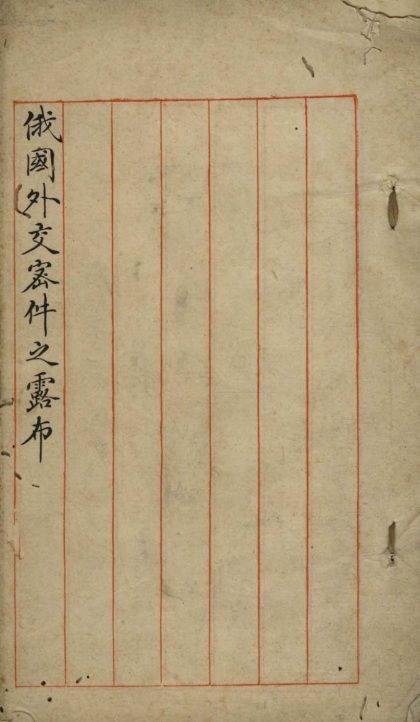 俄國外交密件之露布